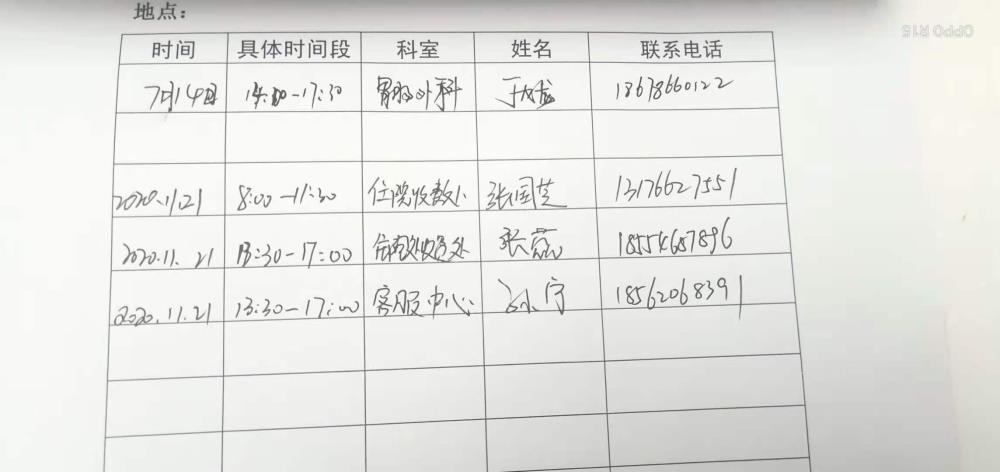 地点：
时间 具体时间段 科室 姓名 联系电话
7月14日 14:00-17:30 胃肠外科 于成龙 18678660122
2020.11.21 8:00-11:30 住院收费处 张国芝 13176627551
2020.11.21 13:30-17:00 收费处 张蕊 18554687896
2020.11.21 13:30-17:00 客服中心 孙宁 18562068391
OPPO R15